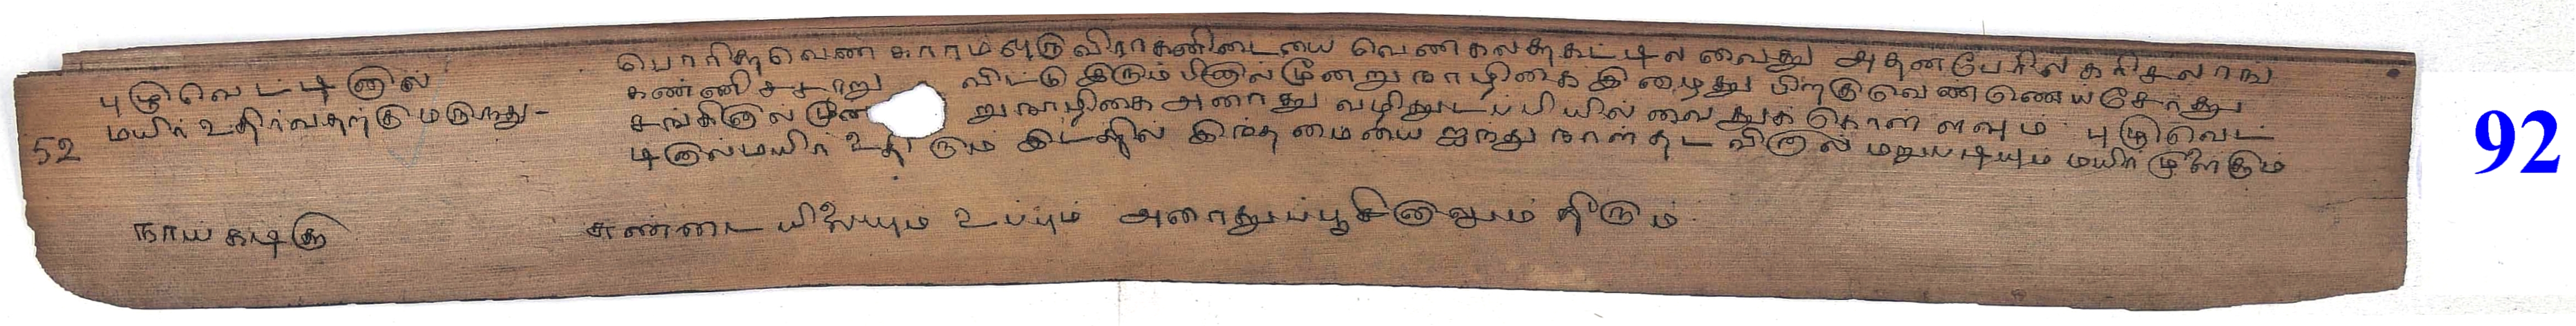 புழுவெட்டினால்
மயிர் உதிர்வதற்கு மருந்து -
52
பொரித்த வெண்காரம் ஒரு விராகனிடையை வெண்கலத்தட்டில் வைத்து அதன்பேரில் கரிசலாங்
கண்ணிச்சாறு விட்டு இரும்பினால் மூன்று நாழிகை இழைத்து பிறகு வெண்ணெய் சேர்த்து
சங்கினால் மூன்று நாழிகை அரைத்து வழித்து டப்பியில் வைத்துக் கொள்ளவும் புழுவெட்
டினால் மயிர் உதிரும் இடத்தில் இந்த மையை ஐந்து நாள் தடவினால் மறுபடியும் மயிர் முளைக்கும்
நாய்கடிக்கு
சுண்டையிலையும் உப்பும் அரைத்துப்பூசினாலும் தீரும்
92